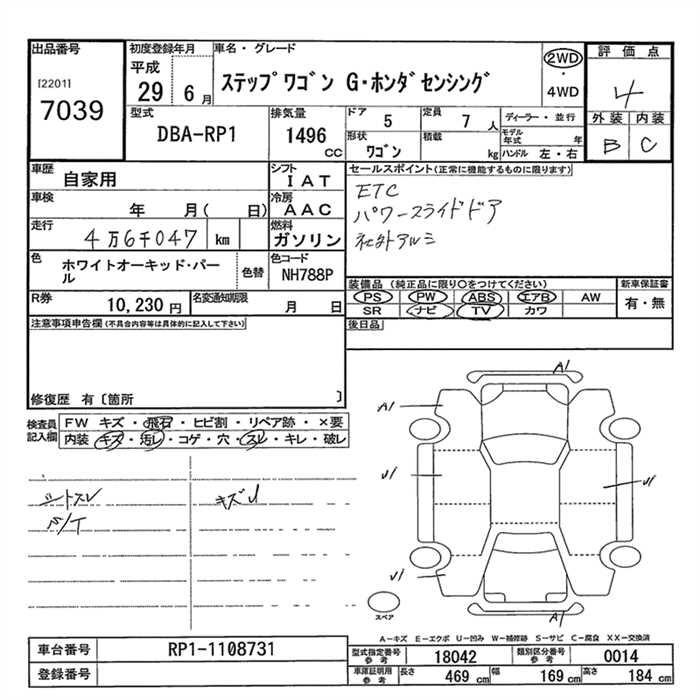 出品番号
[2201]
7039
初度登録年月
平成
29 6 月
車名・グレード
ステップワゴン G・ホンダセンシング
2WD
・
4WD
評価点
4
外装 内装
B C
型式
DBA-RP1
排気量
1496
CC
ドア
5
定員
7 人
形状
ワゴン
積載
kg
ディーラー・並行
モデル年式 年
ハンドル 左・右
車歴
自家用
シフト
IAT
車検
年 月( 日)
冷房
AAC
走行
4万6千047 km
燃料
ガソリン
色
ホワイトオーキッド・パール
色替
色コード
NH788P
R券
10,230 円
名変通知期限
月 日
セールスポイント(正常に機能するものに限ります)
ETC
パワースライドドア
社外アルミ
装備品 (純正品に限り○をつけてください)
PS PW ABS エアB AW
SR ナビ TV カワ
新車保証書
有・無
後日品
注意事項申告欄(不具合内容等は具体的に記入して下さい)
修復歴 有〔箇所 〕
検査員記入欄
FW キズ・飛石・ヒビ割・リペア跡・×要
内装 キズ・汚レ・コゲ・穴・スレ・キレ・破レ
シートスレ
キズU
A1
A1
U1
U1
U1
A1
スペア
A−キズ E−エクボ U−凹み W−補修跡 S−サビ C−腐食 XX−交換済
車台番号
RP1-1108731
登録番号
型式指定番号
参考
18042
類別区分番号
参考
0014
車庫証明用
参考
長さ
469 cm
幅
169 cm
高さ
184 cm